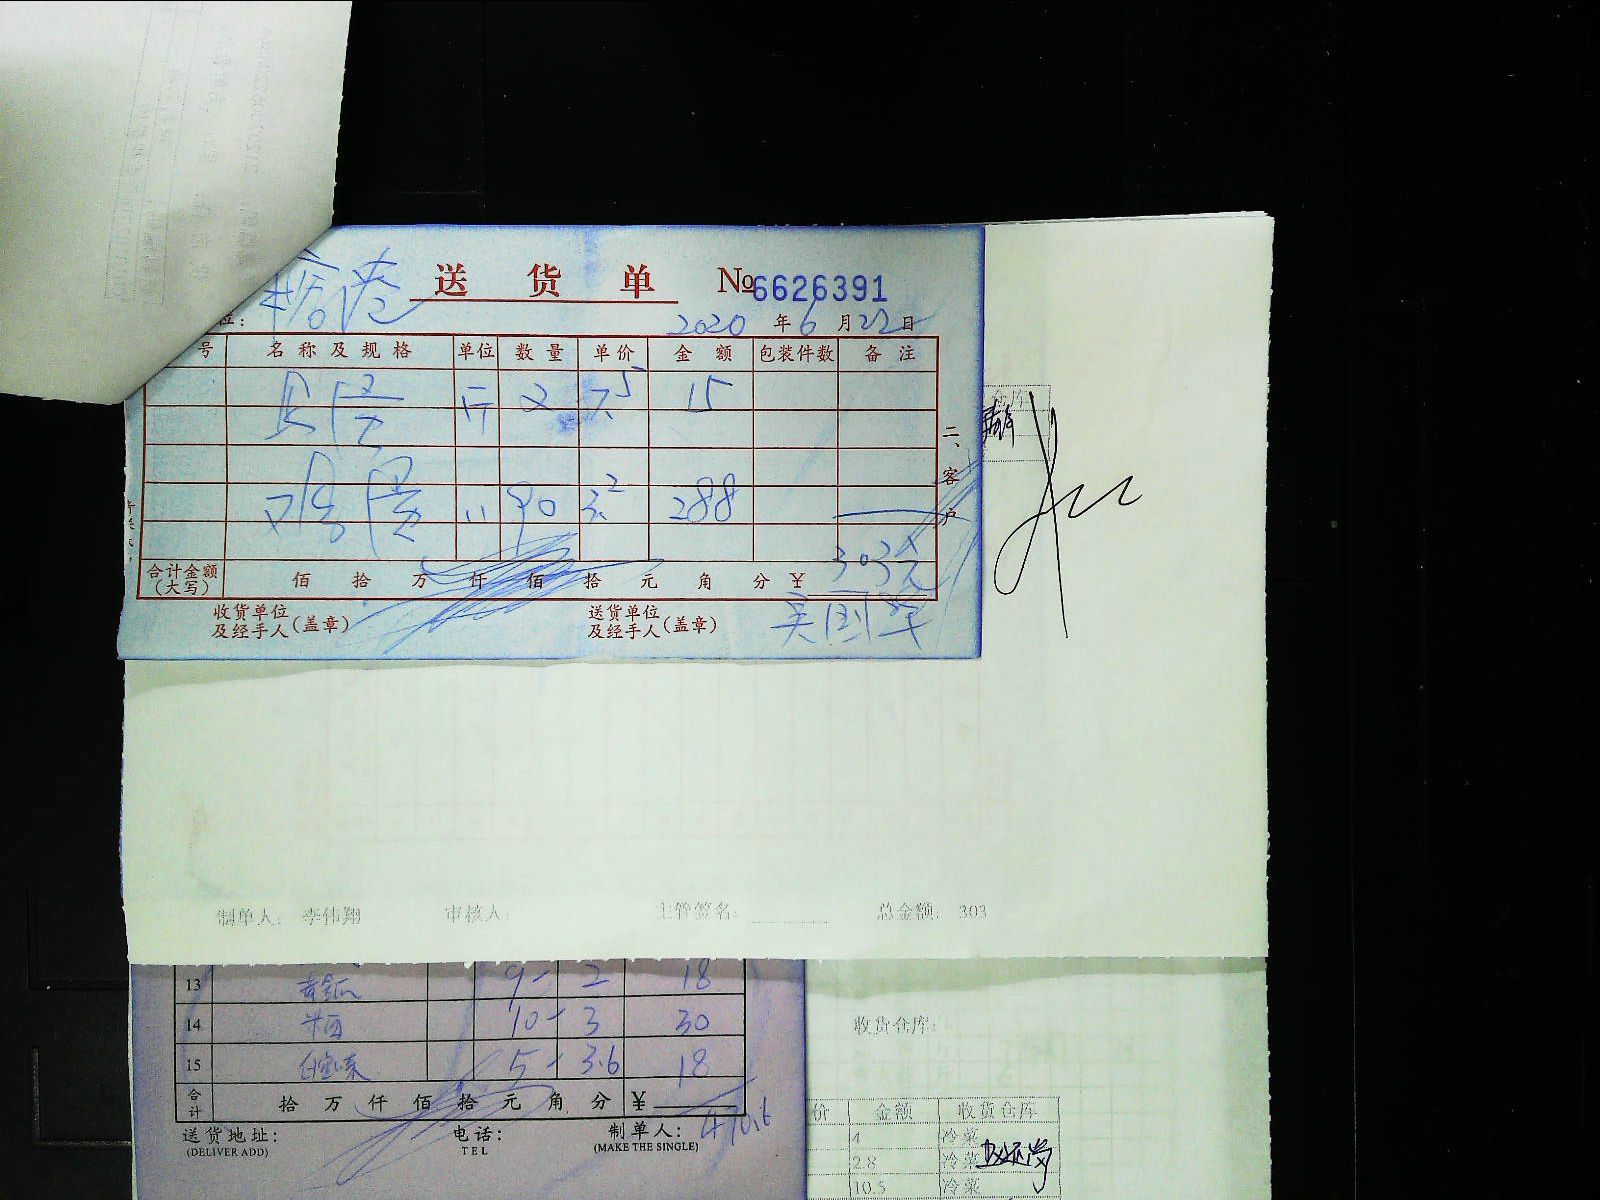 糖港 送货单 №6626391
位: 2020年6月22日
号 名称及规格 单位 数量 单价 金额 包装件数 备注
斤 2 7.5 15
鸡蛋 〃 90 3.2 288
303元
合计金额(大写) 佰 拾 万 仟 佰 拾 元 角 分 ¥
收货单位及经手人(盖章) 送货单位及经手人(盖章) 吴国军
二、客户
仓库
制单人: 李伟翔 审核人: 主管签名: 总金额: 303
13 9- 2 18
14 10- 3 30
15 5- 3.6 18
合计 拾 万 仟 佰 拾 元 角 分 ¥ 470.6
送货地址: 电话: 制单人:
(DELIVER ADD) TEL (MAKE THE SINGLE)
收货仓库:
价 金额 收货仓库
4 冷菜
2.8 冷菜
10.5 冷菜